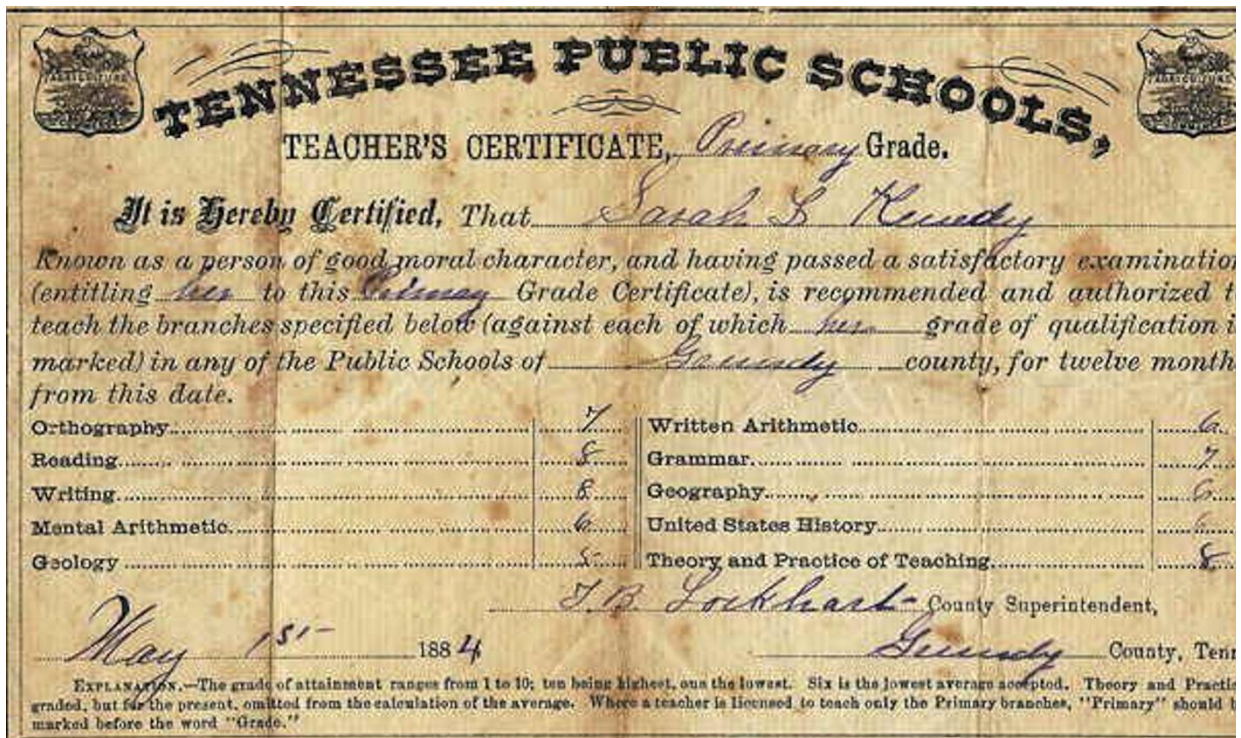 TENNESSEE PUBLIC SCHOOLS,
AGRICULTURE
AGRICULTURE
TEACHER'S CERTIFICATE, Primary Grade.
It is Hereby Certified, That Sarah L Kennedy
Known as a person of good moral character, and having passed a satisfactory examination
(entitling her to this Primary Grade Certificate), is recommended and authorized t
teach the branches specified below (against each of which her grade of qualification i
marked) in any of the Public Schools of Grundy county, for twelve month
from this date.
Orthography 7 Written Arithmetic 6
Reading 8 Grammar 7
Writing 8 Geography 6
Mental Arithmetic 6 United States History 6
Geology 5 Theory and Practice of Teaching 8
T. B. Lockhart County Superintendent,
May 1st 1884 Grundy County, Tenn
EXPLANATION.—The grade of attainment ranges from 1 to 10; ten being highest, one the lowest. Six is the lowest average accepted. Theory and Practic
graded, but for the present, omitted from the calculation of the average. Where a teacher is licensed to teach only the Primary branches, "Primary" should b
marked before the word "Grade."